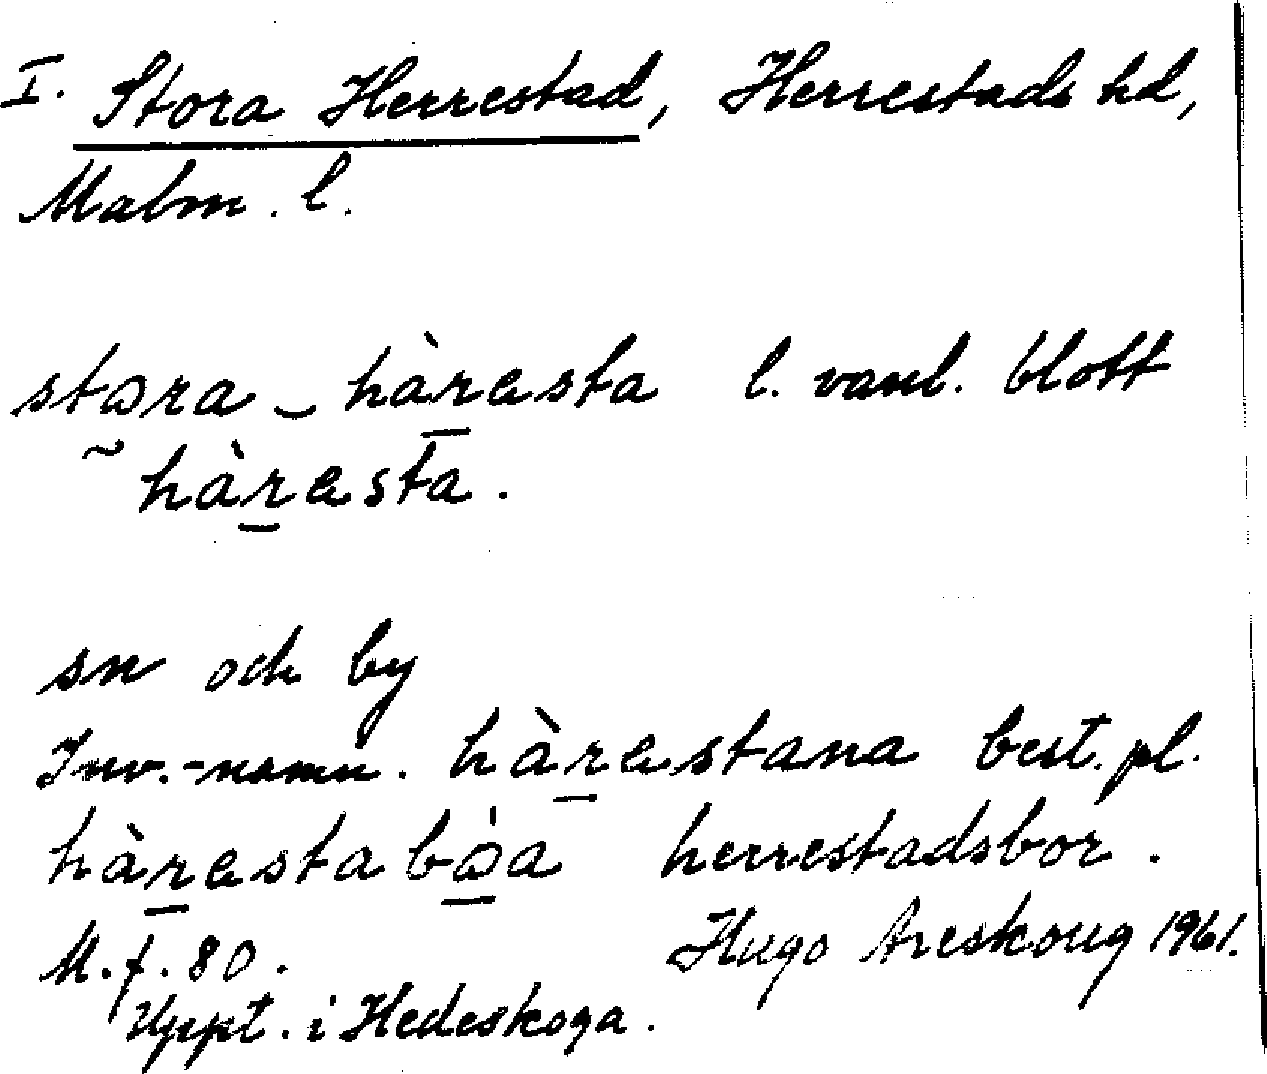 I. Stora Herrestad, Herrestads hd,
Malm. l.
stora hàresta l. vanl. blott
~ hàresta.
sn och by
Inv.-namn. hàrestana best. pl.
hàrestabòa herrestadsbor.
M. f. 80. Hugo Areskoug 1961.
Uppt. i Hedeskoga.